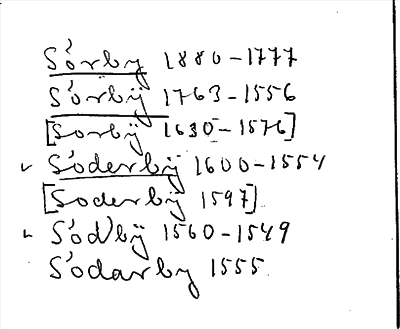 Sórby 1880-1777
Sórbÿ 1763-1556
[Sorbÿ 1630-1576]
Sóderbÿ 1600-1554
[Soderbÿ 1597]
Sód)bÿ 1560-1549
Sódarby 1555